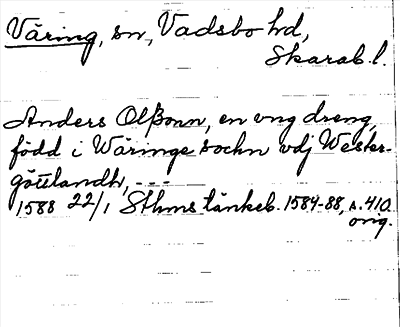 Väring, sn, Vadsbo hd,
Skarab. l.
Anders Olßonn, en vng dreng,
född i Wäringe sockn vdj Wester-
göttlandh, ---
1588 22/1 Sthms tänkeb. 1584-88, s. 410
orig.